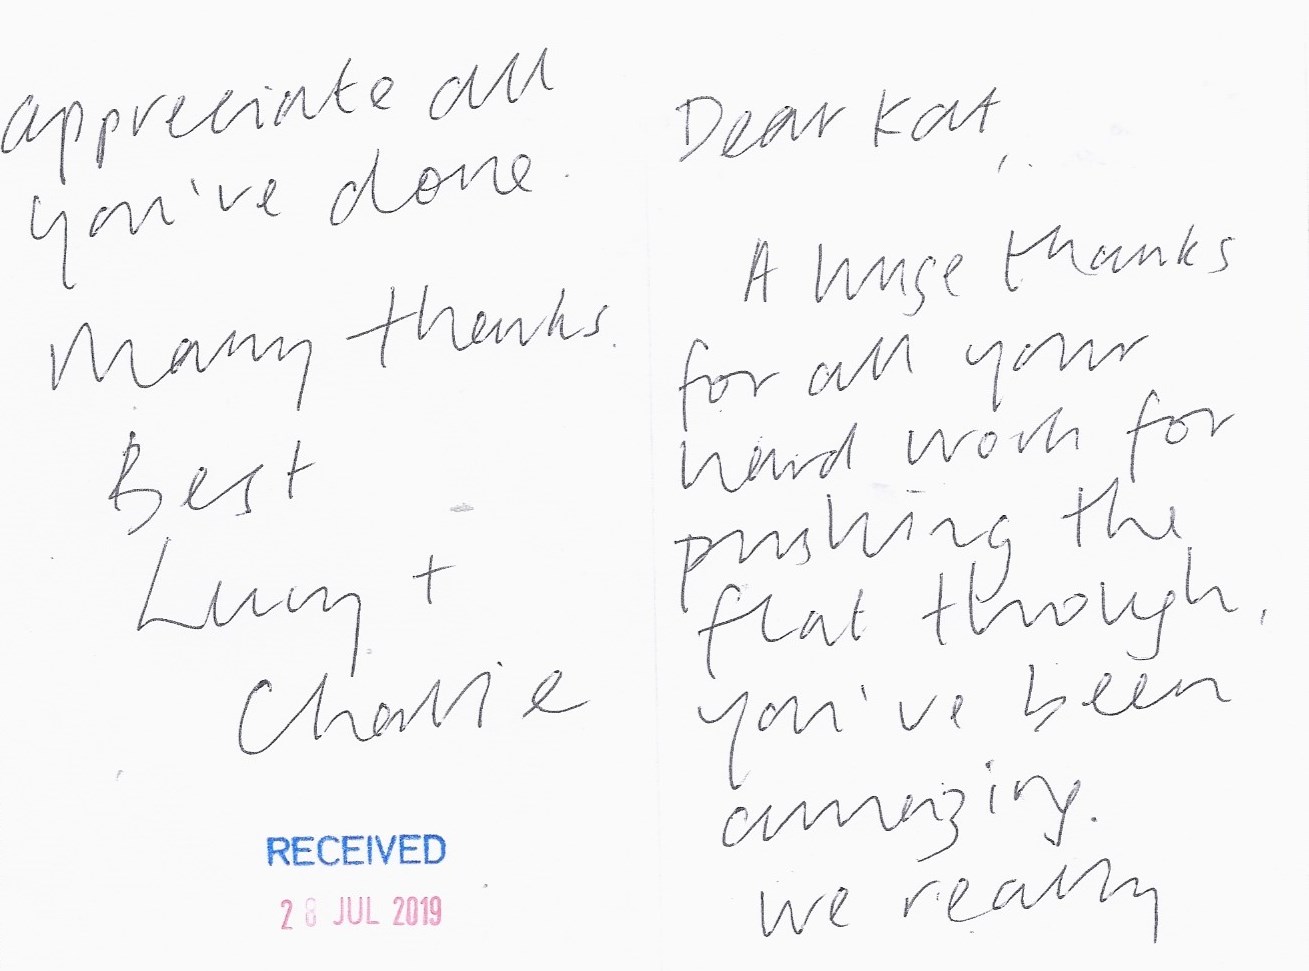 Dear Kat,
A huge thanks
for all your
hard work for
pushing the
flat through,
you've been
amazing.
we really
appreciate all
you've done.
Many thanks.
Best
Lucy +
Charlie
RECEIVED
28 JUL 2019